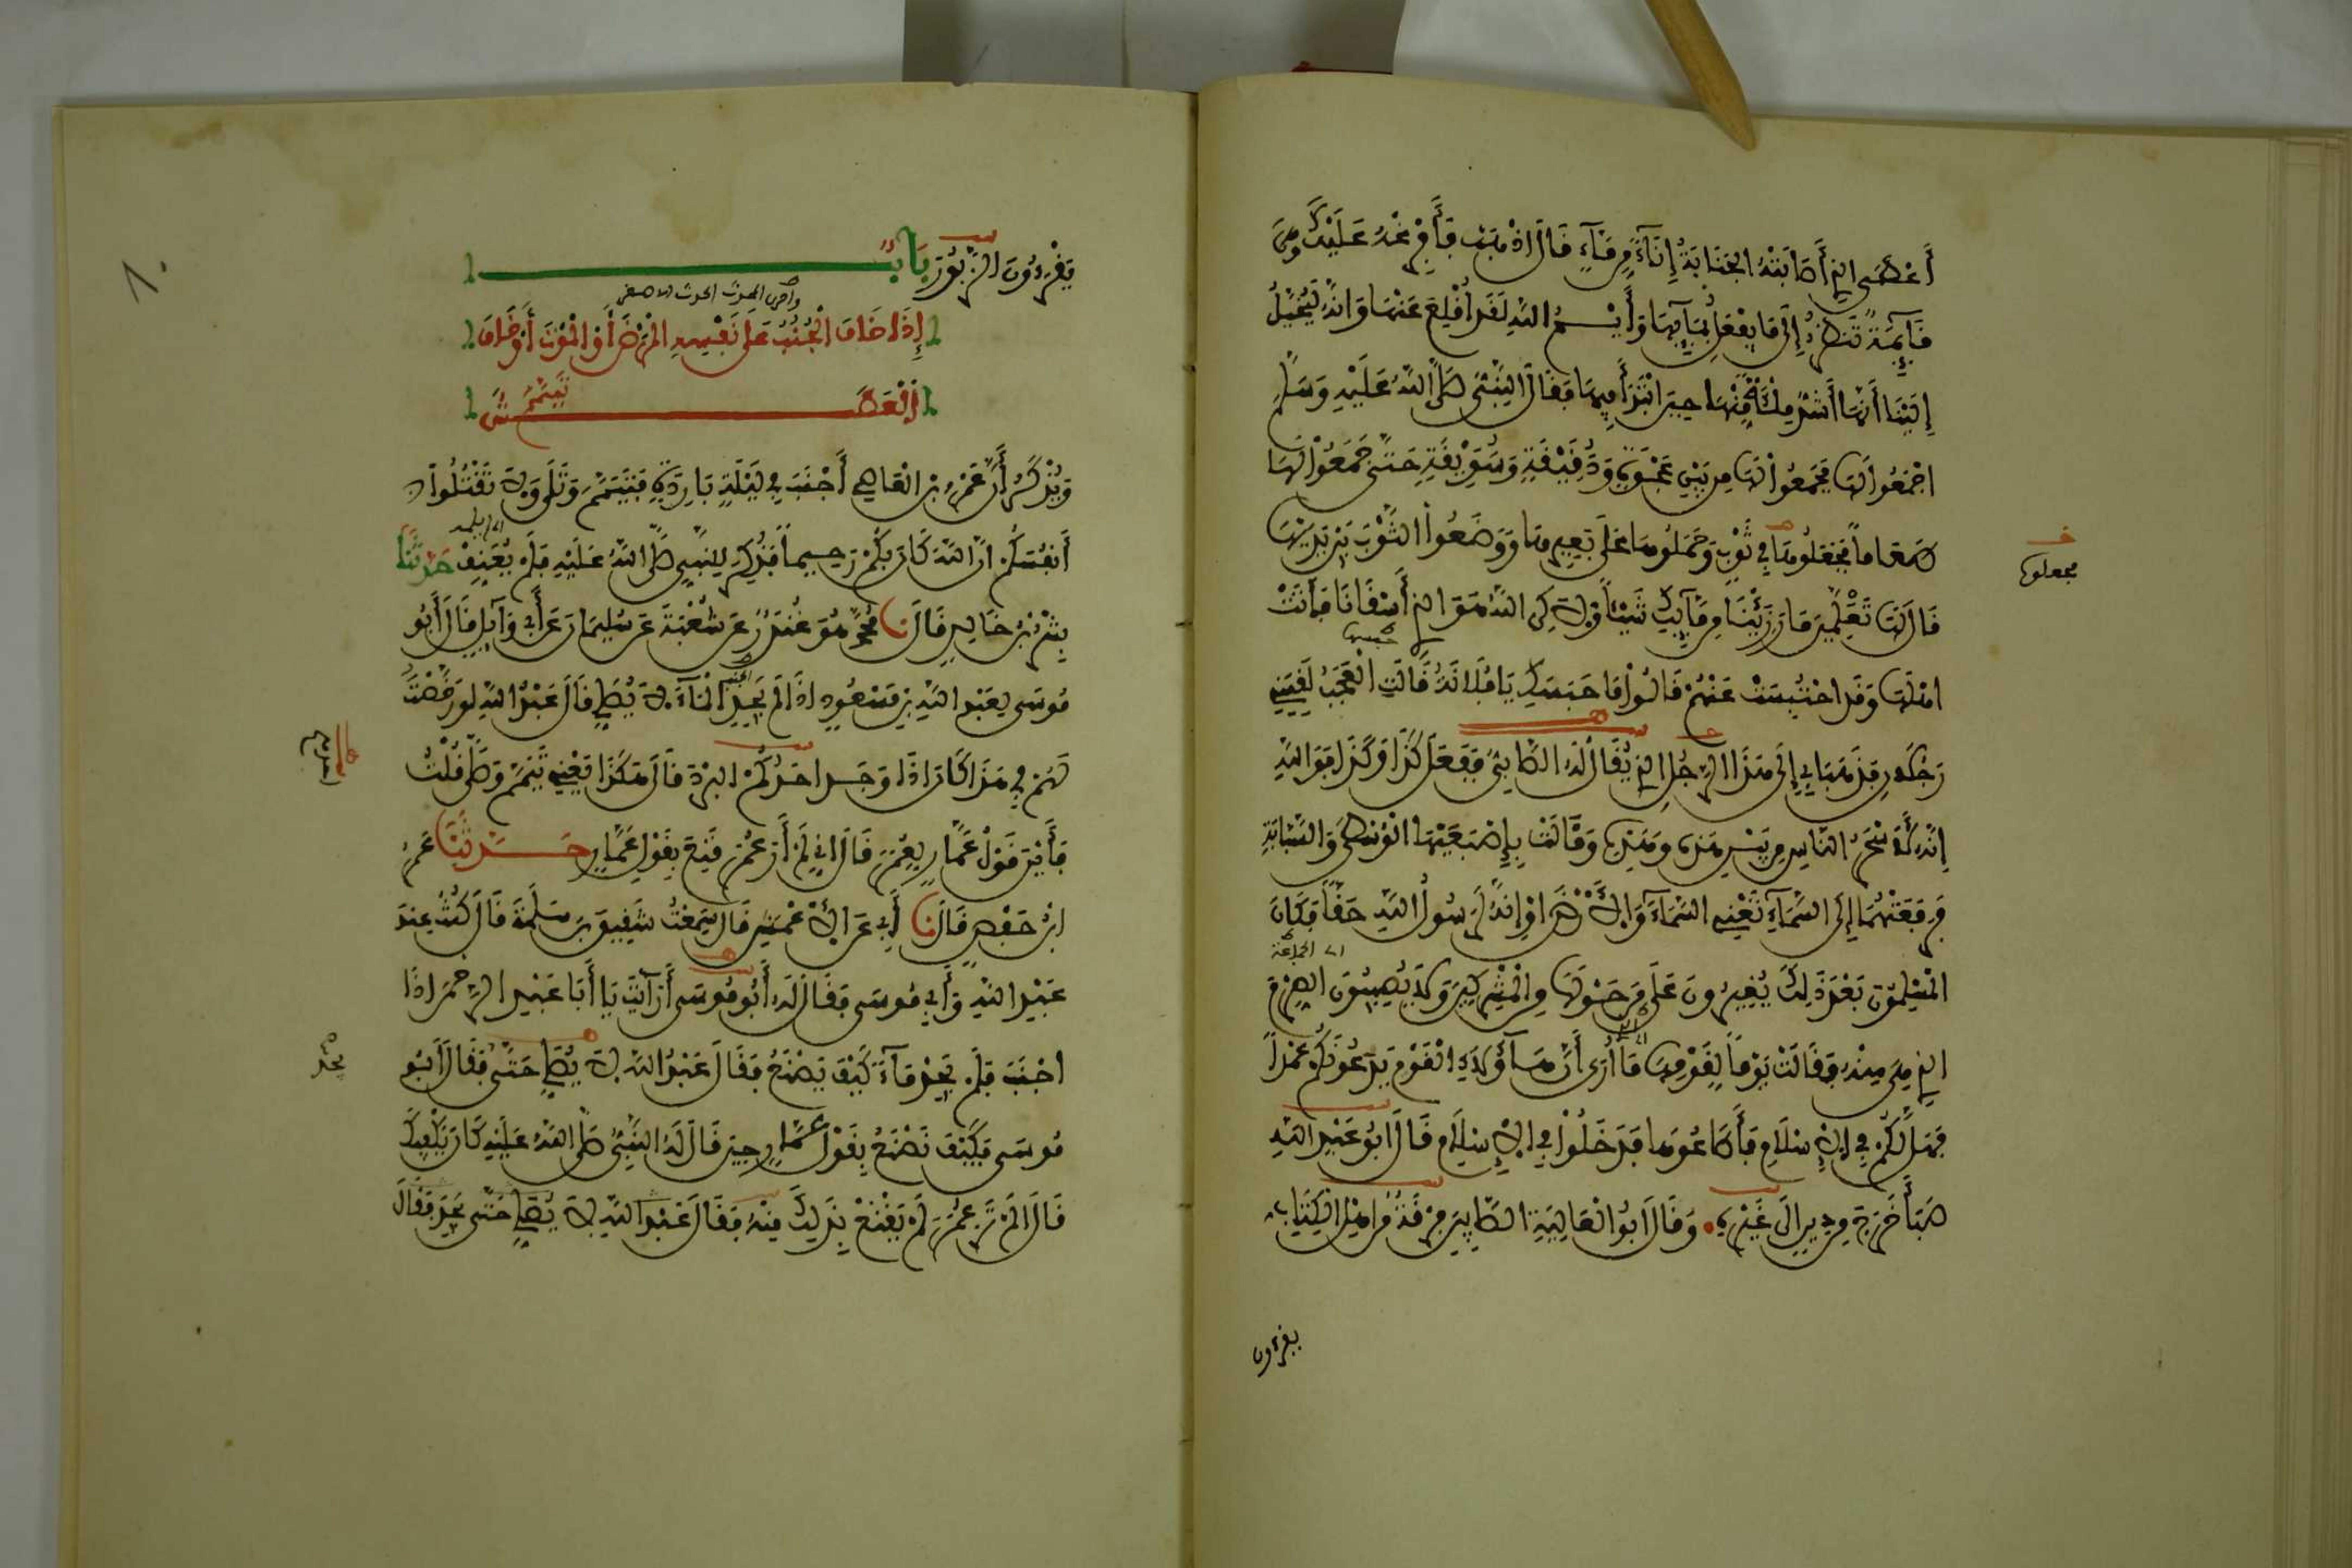 أَعْطَى الذِي أَصَابَتْهُ الجَنَابَةُ إِنَاءً مِن مَاءٍ قَالَ اذْهَبْ فَأَفْرِغْهُ عَلَيْكَ وَهِيَ
قَائِمَةٌ تَنظُرُ إِلَى مَا يُفْعَلُ بِمَائِهَا وَأَيْمُ اللهِ لَقَد اُقْلِعَ عَنْهَا وَإِنَّهُ لَيُخَيَّلُ
إِلَيْنَا أَنَّهَا أَشَدُّ مِلْأَةً مِنْهَا حِينَ ابْتَدَأَ فِيهَا فَقَالَ النَّبِيُّ صَلَّى اللهُ عَلَيْهِ وَسَلَّمَ
اجْمَعُوا لَهَا فَجَمَعُوا لَهَا مِن بَيْنِ عَجْوَةٍ وَدُقَيِّقَةٍ وَسُوَيِّقَةٍ حَتَّى جَمَعُوا لَهَا
طَعَاماً فَجَعَلُوهَا فِي ثَوْبٍ وَحَمَلُوهَا عَلَى بَعِيرِهَا وَوَضَعُوا الثَّوْبَ بَيْنَ يَدَيْهَا
فجعلوه
قَالَ لَهَا تَعْلَمِينَ مَا رَزِئْنَا مِن مَائِكِ شَيْئاً وَلَكِنَّ اللهَ هُوَ الذِي أَسْقَانَا فَأَتَتْ
اهْلَهَا وَقَد احْتُبِسَتْ عَنْهُمْ قَالُوا مَا حَبَسَكِ يَا فُلَانَةُ قَالَتِ الْعَجَبُ لَقِيَنِي
رَجُلَانِ فَذَهَبَا بِي إِلَى هَذَا الرَّجُلِ الذِي يُقَالُ لَهُ الصَّابِئُ فَفَعَلَ كَذَا وَكَذَا فَوَاللهِ
إِنَّهُ لَأَسْحَرُ النَّاسِ مِن بَيْنِ هَذِهِ وَهَذِهِ وَقَالَتْ بِإِصْبَعَيْهَا الْوُسْطَى وَالسَّبَّابَةِ
فَرَفَعَتْهُمَا إِلَى السَّمَاءِ تَعْنِي السَّمَاءَ وَالْأَرْضَ اوْ إِنَّهُ لَرَسُولُ اللهِ حَقّاً فَكَانَ
الْمُسْلِمُونَ بَعْدَ ذَلِكَ يُغِيرُونَ عَلَى مَن حَوْلَهَا مِن الْمُشْرِكِينَ وَلَا يُصِيبُونَ الصِّرْمَ
الذِي هِيَ مِنْهُ فَقَالَتْ يَوْماً لِقَوْمِهَا مَا أُرَى أَنَّ هَؤُلَاءِ الْقَوْمَ يَدَعُونَكُمْ عَمْداً
فَهَل لَّكُمْ فِي الْإِسْلَامِ فَأَطَاعُوهَا فَدَخَلُوا فِي الْإِسْلَامِ قَالَ ابُو عَبْدِ اللهِ
صَبَأَ خَرَجَ مِن دِينٍ الَى غَيْرِهِ. وَقَالَ ابُو الْعَالِيَةِ الصَّابِينَ فِرْقَةٌ مِن اهْلِ الْكِتَابِ
يقرءون
يَقْرَءُونَ الزَّبُورَ بَابٌ
إِذَا خَافَ الْجُنُبُ عَلَى نَفْسِهِ الْمَرَضَ أَوِ الْمَوْتَ أَوْ خَافَ
الْعَطَشَ تَيَمَّمَ
وَيُذْكَرُ أَنَّ عَمْرَو بْنَ الْعَاصِي أَجْنَبَ فِي لَيْلَةٍ بَارِدَةٍ فَتَيَمَّمَ وَتَلَى وَلَا تَقْتُلُوا
أَنفُسَكُمْ انَّ اللهَ كَانَ بِكُمْ رَحِيماً فَذُكِرَ لِلنَّبِيِّ صَلَّى اللهُ عَلَيْهِ فَلَمْ يُعَنِّفْ حَدَّثَنَا
بِشْرُ بْنُ خَالِدٍ قَالَ نا مُحَمَّدٌ هُوَ غُنْدَرٌ عَن شُعْبَةَ عَن سُلَيْمَانَ عَن أَبِي وَائِلٍ قَالَ أَبُو
مُوسَى لِعَبْدِ اللهِ بْنِ مَسْعُودٍ اذَا لَمْ يَجِدِ الْمَاءَ لَا يُصَلِّي قَالَ عَبْدُ اللهِ لَوْ رَخَّصْتُ
لَهُمْ فِي هَذَا كَانَ اذَا وَجَدَ احَدُكُمُ الْبَرْدَ قَالَ هَكَذَا يَعْنِي تَيَمَّمَ وَصَلَّى قُلْتُ
فَأَيْنَ قَوْلُ عَمَّارٍ لِعُمَرَ قَالَ انِّي لَمْ أَرَ عُمَرَ قَنِعَ بِقَوْلِ عَمَّارٍ حَدَّثَنَا عُمَرُ
ابْنُ حَفْصٍ قَالَ نا أَبِي عَن الْأَعْمَشِ قَالَ سَمِعْتُ شَقِيقَ بْنَ سَلَمَةَ قَالَ كُنْتُ عِندَ
عَبْدِ اللهِ وَأَبِي مُوسَى فَقَالَ لَهُ أَبُو مُوسَى أَرَأَيْتَ يَا أَبَا عَبْدِ الرَّحْمَنِ اذَا
اجْنَبَ فَلَمْ يَجِدْ مَاءً كَيْفَ يَصْنَعُ فَقَالَ عَبْدُ اللهِ لَا يُصَلِّي حَتَّى فَقَالَ أَبُو
يجد
مُوسَى فَكَيْفَ تَصْنَعُ بِقَوْلِ عَمَّارٍ حِينَ قَالَ لَهُ النَّبِيُّ صَلَّى اللهُ عَلَيْهِ كَانَ يَكْفِيكَ
قَالَ الَمْ تَرَ عُمَرَ لَمْ يَقْنَعْ بِذَلِكَ مِنْهُ فَقَالَ عَبْدُ اللهِ لَا يُصَلِّي حَتَّى يَجِدَ فَقَالَ